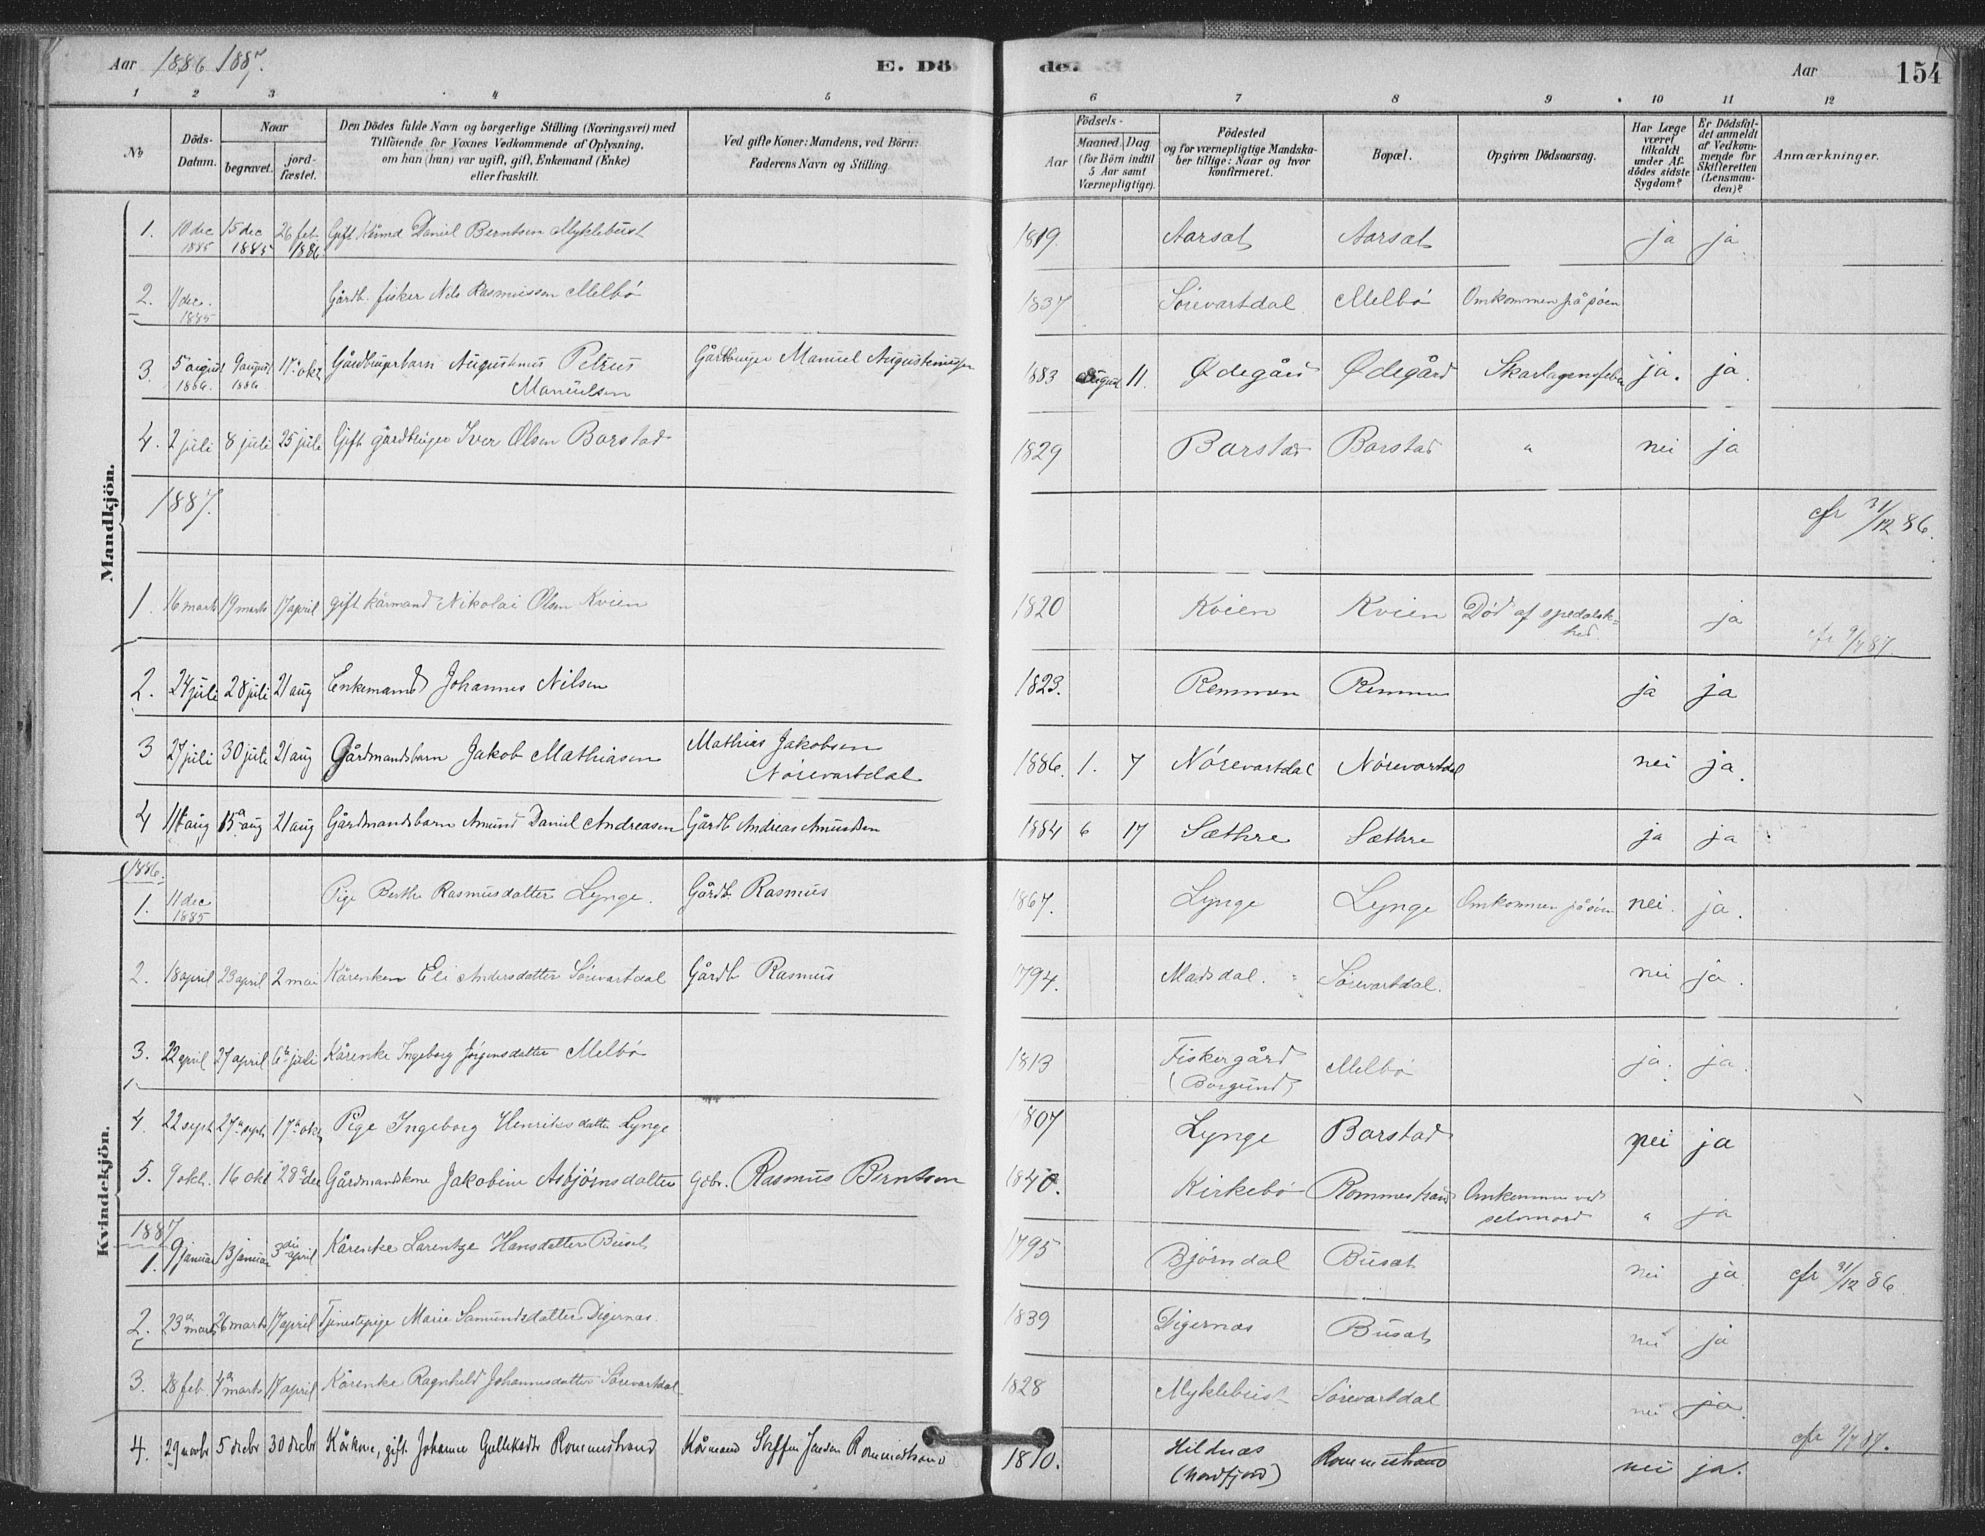 Aar 1886 1887. E. Dö de. Aar 154
1 2 3 4 5 6 7 8 9 10 11 12
No Döds-Datum. Naar begravet. jordfæstet. Den Dödes fulde Navn og borgerlige Stilling (Næringsvei) med Tilföiende for Voxnes Vedkommende af Oplysning, om han (hun) var ugift, gift, Enkemand (Enke) eller fraskilt. Ved gifte Koner: Mandens, ved Börn: Faderens Navn og Stilling.
Födsels- Aar Maaned. Dag (for Börn indtil 5 Aar samt Værnepligtige). Födested og for værnepligtige Mandskaber tillige: Naar og hvor konfirmeret. Bopæl. Opgiven Dödsaarsag. Har Læge været tilkaldt under Afdödes sidste Sygdom? Er Dödsfaldet anmeldt af Vedkommende for Skifteretten (Lensmanden)? Anmærkninger.
Mandkjön.
1. 10 dec 1885 15 dec 1885 26 feb. 1886 Gift Kårmd Daniel Berntsen Myklebust 1819. Aarsæt Aarsæt ja ja
2. 11 dec. 1885 Gårdb. fisker Nils Rasmussen Melbö 1837 Sörevartdal Melbö Omkommen på söen
3. 5 august 1886 9 august 1886 17de okt Gårdbrugerbarn Augustinus Petrus Manuelsen Gårdbruger Manuel Augustinussen 1883 August 11. Ødegård Ødegård Skarlagensfeber ja. ja.
4. 2 juli 8 juli 25 juli Gift gårdbruger Iver Olsen Barstad 1829 Barstad Barstad " nei ja
1887. cfr 31/12 86.
1. 16 marts 19 marts 17 april gift kårmand Nikolai Olsen Kvien 1820 Kvien Kvien Död af spedalskhed ja cfr 9/7 87.
2. 24 juli 28 juli 21 aug Enkemand Johannes Nilsen 1823. Remmen Remmen ja ja
3 27 juli 30 juli 21 aug Gårdmandsbarn Jakob Mathiasen Mathias Jakobsen Nörevartdal 1886. 1. 7 Nörevartdal Nörevartdal nei ja.
4 11te aug 15de aug 21 aug Gårdmandsbarn Amund Daniel Andreasen Gårdb Andreas Amundsen 1884 6 17 Sæthre Sæthre ja ja
Kvindekjön.
1886.
1. 11 dec 1885 Pige Berthe Rasmusdatter Lynge. Gårdb. Rasmus 1867. Lynge Lynge Omkommen på söen nei. ja.
2. 18 april 23 april 2 mai Kårenken Eli Andersdatter Sörevartdal Gårdb Rasmus 1794. Madsdal. Sörevartdal. nei ja.
3. 22 april 27 april 6te juli Kårenke Ingeborg Jörgensdatter Melbö 1813 Fiskergård (Borgund) Melbö ja. ja.
4. 22 sept 27de sept 17de okt Pige Ingeborg Henriksdatter Lynge 1807 Lynge Barstad nei ja
5. 9 okt. 16 okt 28de dec Gårdmandskone Jakobine Asbjörnsdatter Gdbr. Rasmus Berntsen 1840. Kirkebö Rommestrand Omkommen ved selvmord " ja
1887
1. 9 januar 13 januar 3die april Kårenke Larentze Hansdatter Busæt 1795 Bjørndal Busæt nei ja cfr 31/12 86.
2. 23de marts 26 marts 17 april Tjenestepige Marie Samundsdatter Digernæs. 1839 Digernæs Busæt nei ja
3. 28 feb. 4de marts 17 april Kårenke Ragnhild Johannesdatter Sörevartdal 1828 Myklebust Sörevartdal nei ja. cfr 9/7 87.
4. 29 novbr 5 decbr 30 decbr Kårkone, gift Johanne Gulleksdtr Rommestrand Kårmand Steffen Jensen Rommestrand 1810. Hildnæs (Nordfjord) Rommestrand nei ja.